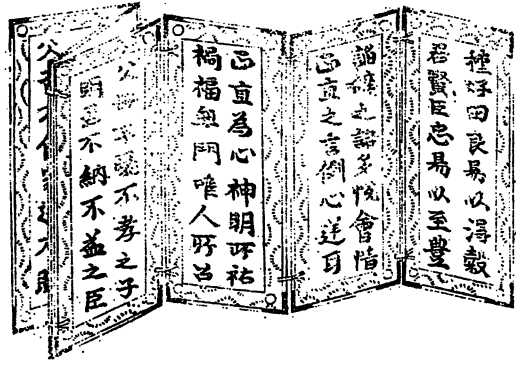 種好田良易以得穀
君賢臣忠易以至豊
諂辞之語多悦會情
正直之言倒心逆耳
正直為心神明所祐
禍福無門唯人所召
父母不愛不孝之子
明君不納不益之臣
父母不信家道不睦